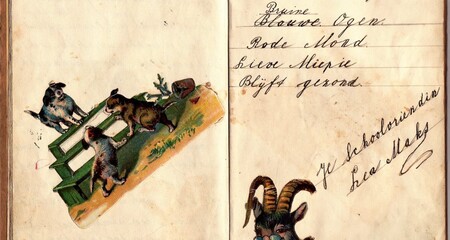 Bruine
Blauwe Ogen.
Rode Mond.
Lieve Miepie
Blijft gezond.
Je Schoolvriendin
Lea Maks